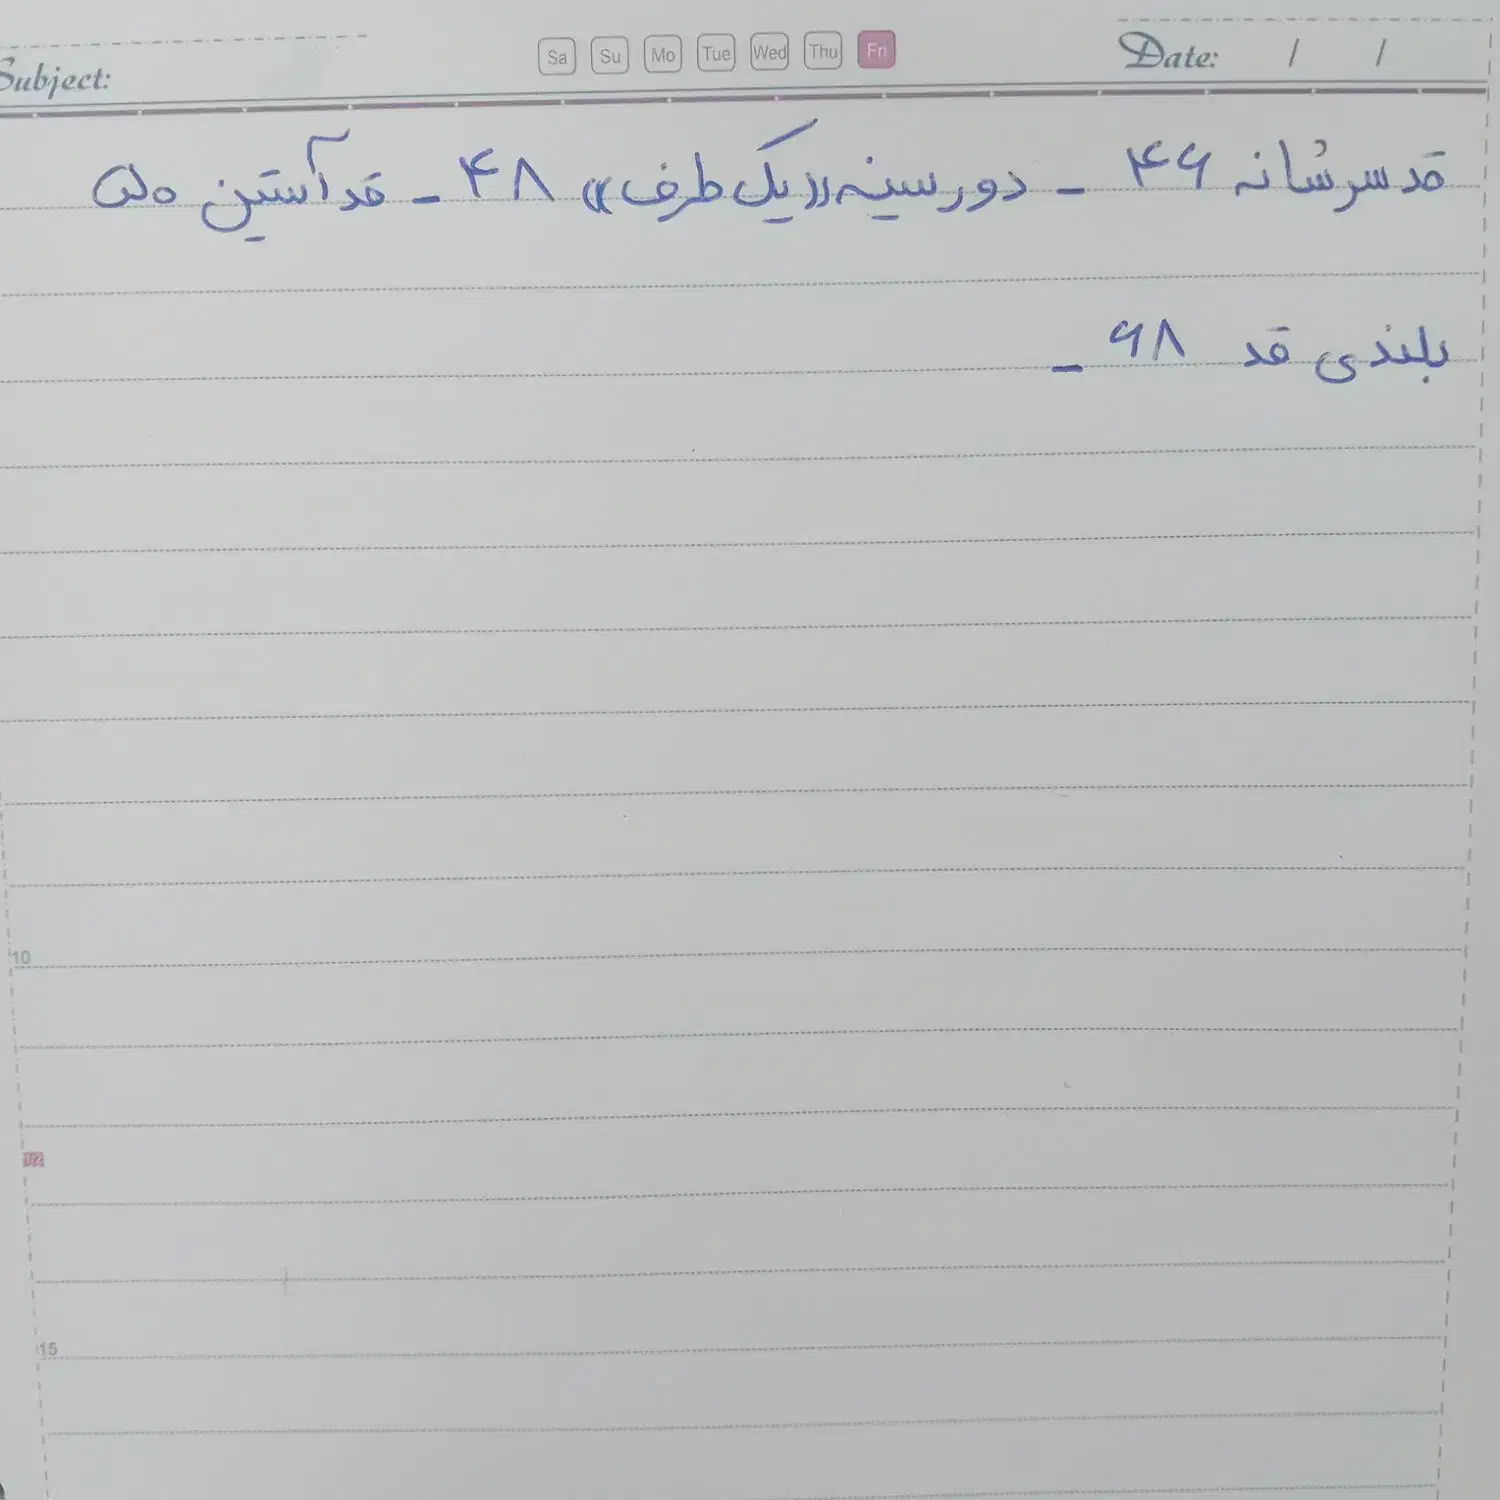 Subject: Sa Su Mo Tue Wed Thu Fri Date: / /
قد سرشانه ۴۶ - دور سینه «یک طرف» ۴۸ - قد آستین ۵۰
بلندی قد ۶۸ -
10
1/2
15